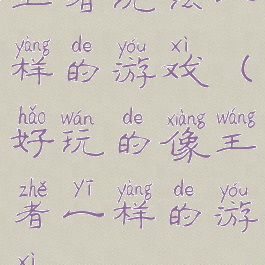 yàng de yóu xì
样的游戏（
hǎo wán de xiàng wáng
好玩的像王
zhě yī yàng de yóu
者一样的游
xì